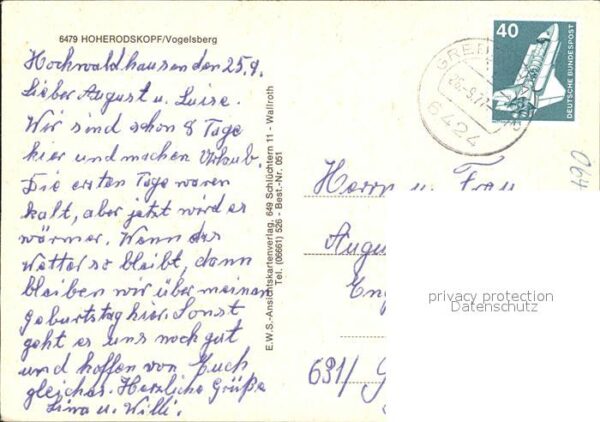 6479 HOHERODSKOPF/Vogelsberg
Hochwaldhausen den 25.9.
Lieber August u. Luise.
Wir sind schon 8 Tage
hier und machen Urlaub.
Die ersten Tage waren
kalt, aber jetzt wird es
wärmer. Wenn das
Wetter so bleibt, dann
bleiben wir über meinen
Geburtstag hier. Sonst
geht es uns noch gut
und hoffen von Euch
gleiches. Herzliche Grüße
Lina u. Willi.
E.W.S.-Ansichtskartenverlag, 649 Schlüchtern 11 - Wallroth
Tel. (06661) 526 - Best.-Nr. 051
40
DEUTSCHE BUNDESPOST
26.9.77
6424
Herrn u. Frau
August
691/
064
privacy protection
Datenschutz